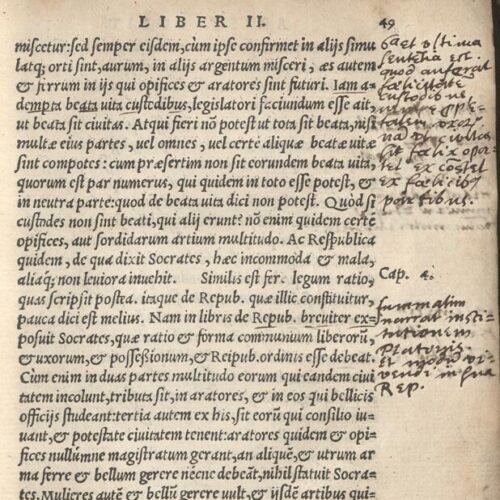 LIBER II.
49
miscetur: sed semper eisdem, cùm ipse confirmet in alijs simu
latq; orti sint, aurum, in alijs argentum misceri, æs autem
& ferrum in ijs qui opifices & aratores sint futuri. Iam a-
dempta beata uita custodibus, legislatori faciundum esse ait,
ut beata sit ciuitas. Atqui fieri nõ potest ut tota sit beata, nisi
multæ eius partes, uel omnes, uel certè aliquæ beatæ uitæ
sint compotes: cùm præsertim non sit eorundem beata uita,
quorum est par numerus, qui quidem in toto esse potest, &
in neutra parte: quod de beata uita dici non potest. Quòd si
custodes non sint beati, qui alij erunt? nõ enim quidem certè
opifices, aut sordidarum artium multitudo. Ac Respublica
quidem, de qua dixit Socrates, hæc incommoda & mala,
aliaq; non leuiora inuehit. Similis est ferè legum ratio,
quas scripsit postea. itaque de Repub. quæ illic constituitur,
pauca dici est melius. Nam in libris de Repub. breuiter ex-
posuit Socrates, quæ ratio & forma communium liberorũ,
& uxorum, & possessionum, & Reipub. ordinis esse debeat.
Cùm enim in duas partes multitudo eorum qui eandem ciui
tatem incolunt, tributa sit, in aratores, & in eos qui bellicis
officijs studeant: tertia autem ex his, sit eorũ qui consilio iu-
uant, & potestate ciuitatem tenent: aratores quidem & opi-
fices nullúmne magistratum gerant, an aliquẽ, & utrum ar
ma ferre & bellum gerere nécne debeãt, nihil statuit Socra-
tes. Mulieres autẽ & bellum gerere uult, & ijsdẽ artibus qui
6a et ultima
sententia est
quod auferat
fœlicitatẽ
custodibus
ex fœlicibus
partibus.
Cap. 4.
summatim
narrat insti-
tutionem
Platonis.
et modũ vi-
vendi in sua
Rep.